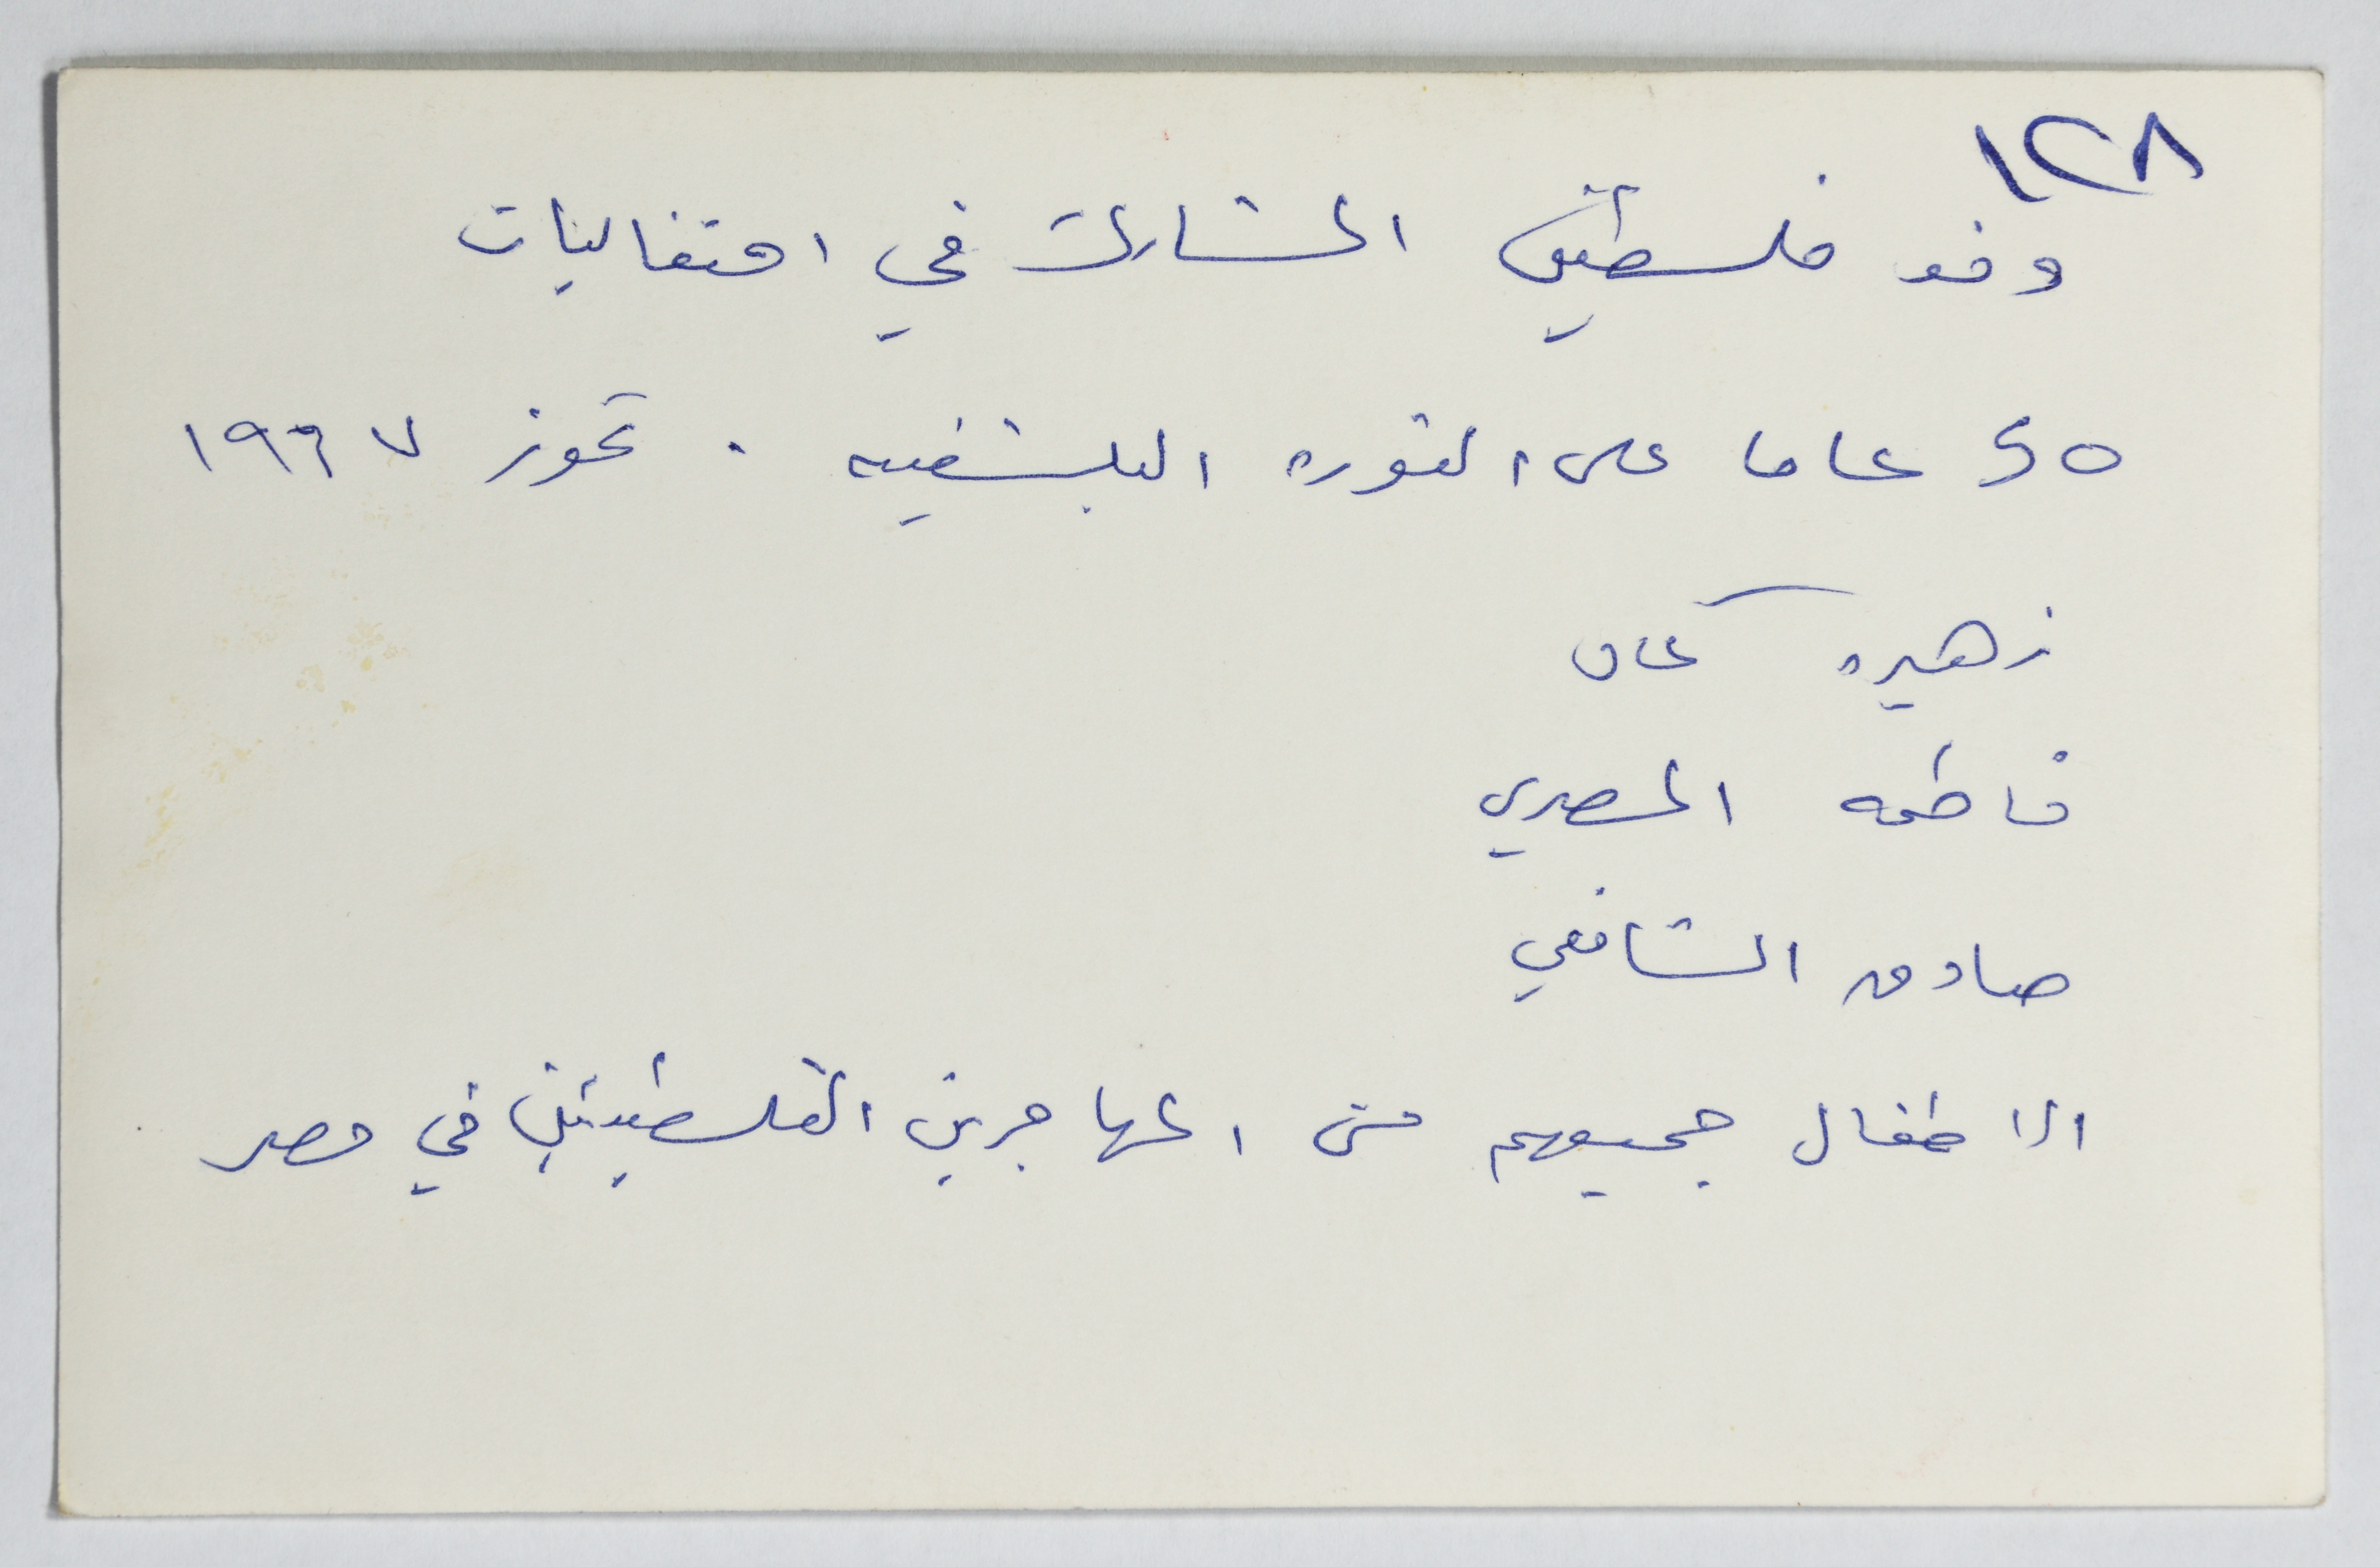 ١٢٨
وفد فلسطين المشارك في احتفاليات
50 عاما على الثوره البلشفيه . تموز ١٩٦٧
زهيره كمال
فاطمه المصري
صادق الشافعي
الاطفال جميعهم من المهاجرين الفلسطينيين في مصر